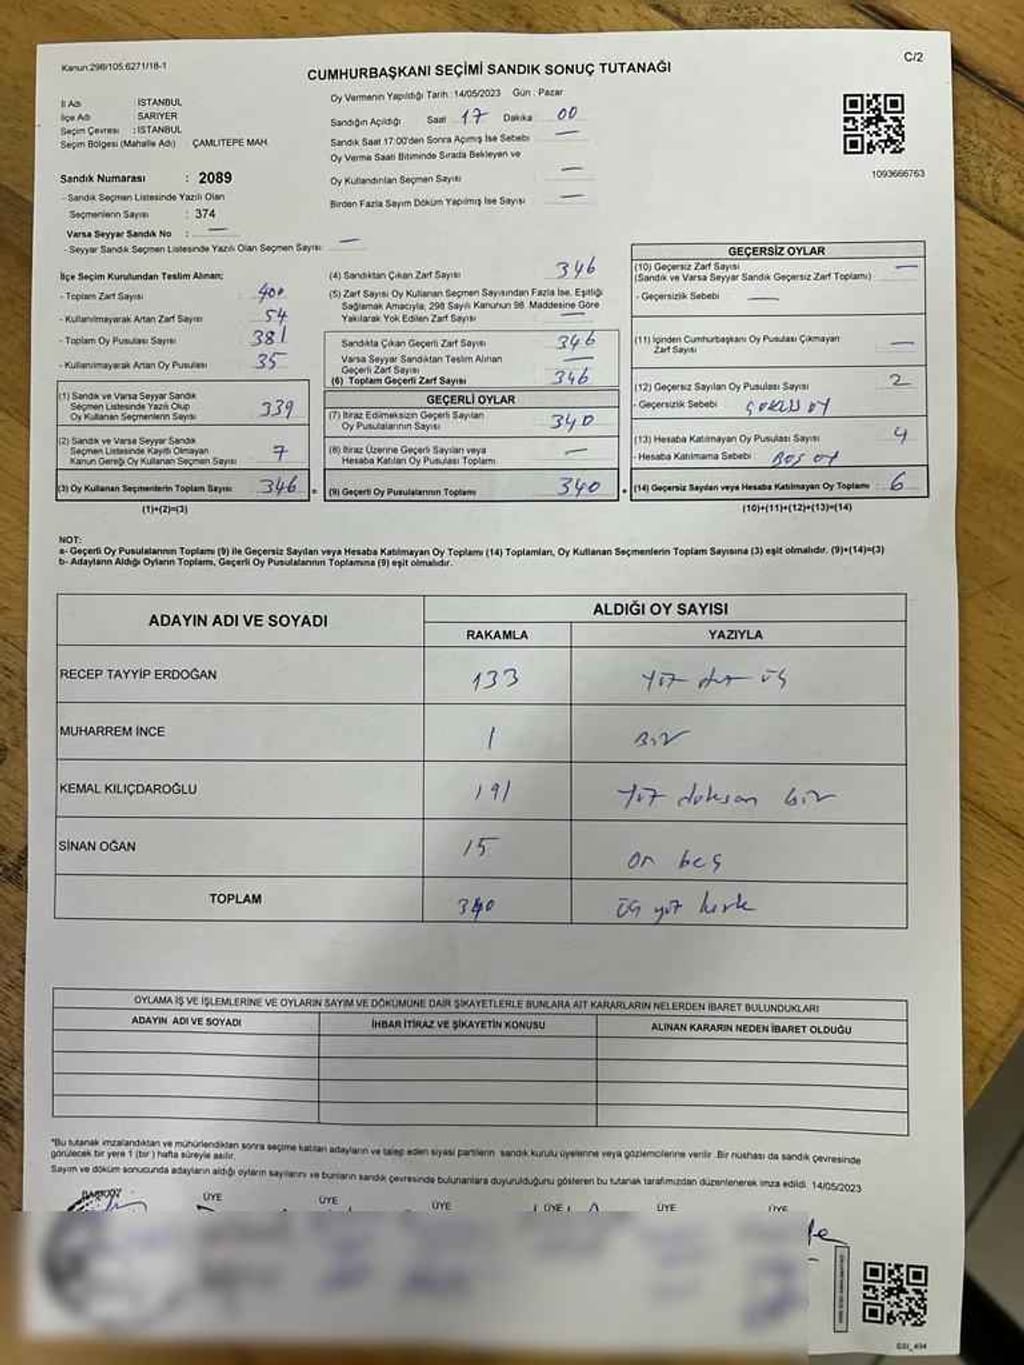 Kanun:298/105:6271/18-1
C/2
CUMHURBAŞKANI SEÇİMİ SANDIK SONUÇ TUTANAĞI
İl Adı : İSTANBUL
İlçe Adı : SARIYER
Seçim Çevresi : İSTANBUL
Seçim Bölgesi (Mahalle Adı) ÇAMLITEPE MAH.
Sandık Numarası : 2089
- Sandık Seçmen Listesinde Yazılı Olan
Seçmenlerin Sayısı : 374
Varsa Seyyar Sandık No : —
- Seyyar Sandık Seçmen Listesinde Yazılı Olan Seçmen Sayısı: —
Oy Vermenin Yapıldığı Tarih : 14/05/2023 Gün : Pazar
Sandığın Açıldığı Saat 17 Dakika 00
Sandık Saat 17:00'den Sonra Açılmış İse Sebebi —
Oy Verme Saati Bitiminde Sırada Bekleyen ve
Oy Kullandırılan Seçmen Sayısı —
Birden Fazla Sayım Döküm Yapılmış İse Sayısı —
1093666763
İlçe Seçim Kurulundan Teslim Alınan;
- Toplam Zarf Sayısı : 400
- Kullanılmayarak Artan Zarf Sayısı : 54
- Toplam Oy Pusulası Sayısı : 381
- Kullanılmayarak Artan Oy Pusulası : 35
(1) Sandık ve Varsa Seyyar Sandık
Seçmen Listesinde Yazılı Olup
Oy Kullanan Seçmenlerin Sayısı 339
(2) Sandık ve Varsa Seyyar Sandık
Seçmen Listesinde Kayıtlı Olmayan
Kanun Gereği Oy Kullanan Seçmen Sayısı 7
(3) Oy Kullanan Seçmenlerin Toplam Sayısı 346
(1)+(2)=(3)
(4) Sandıktan Çıkan Zarf Sayısı 346
(5) Zarf Sayısı Oy Kullanan Seçmen Sayısından Fazla İse, Eşitliği
Sağlamak Amacıyla, 298 Sayılı Kanunun 98. Maddesine Göre
Yakılarak Yok Edilen Zarf Sayısı —
Sandıkta Çıkan Geçerli Zarf Sayısı 346
Varsa Seyyar Sandıktan Teslim Alınan
Geçerli Zarf Sayısı —
(6) Toplam Geçerli Zarf Sayısı 346
GEÇERLİ OYLAR
(7) İtiraz Edilmeksizin Geçerli Sayılan
Oy Pusulalarının Sayısı 340
(8) İtiraz Üzerine Geçerli Sayılan veya
Hesaba Katılan Oy Pusulası Toplamı —
= (9) Geçerli Oy Pusulalarının Toplamı 340
GEÇERSİZ OYLAR
(10) Geçersiz Zarf Sayısı —
(Sandık ve Varsa Seyyar Sandık Geçersiz Zarf Toplamı)
- Geçersizlik Sebebi : —
(11) İçinden Cumhurbaşkanı Oy Pusulası Çıkmayan
Zarf Sayısı —
(12) Geçersiz Sayılan Oy Pusulası Sayısı 2
- Geçersizlik Sebebi : OY
(13) Hesaba Katılmayan Oy Pusulası Sayısı 4
- Hesaba Katılmama Sebebi : BOŞ OY
+ (14) Geçersiz Sayılan veya Hesaba Katılmayan Oy Toplamı 6
(10)+(11)+(12)+(13)=(14)
NOT:
a- Geçerli Oy Pusulalarının Toplamı (9) ile Geçersiz Sayılan veya Hesaba Katılmayan Oy Toplamı (14) Toplamları, Oy Kullanan Seçmenlerin Toplam Sayısına (3) eşit olmalıdır. (9)+(14)=(3)
b- Adayların Aldığı Oyların Toplamı, Geçerli Oy Pusulalarının Toplamına (9) eşit olmalıdır.
ADAYIN ADI VE SOYADI
ALDIĞI OY SAYISI
RAKAMLA YAZIYLA
RECEP TAYYİP ERDOĞAN 133 yüz otuz üç
MUHARREM İNCE 1 Bir
KEMAL KILIÇDAROĞLU 191 Yüz doksan bir
SİNAN OĞAN 15 on beş
TOPLAM 340 üç yüz kırk
OYLAMA İŞ VE İŞLEMLERİNE VE OYLARIN SAYIM VE DÖKÜMÜNE DAİR ŞİKAYETLERLE BUNLARA AİT KARARLARIN NELERDEN İBARET BULUNDUKLARI
ADAYIN ADI VE SOYADI İHBAR İTİRAZ VE ŞİKAYETİN KONUSU ALINAN KARARIN NEDEN İBARET OLDUĞU
*Bu tutanak imzalandıktan ve mühürlendikten sonra seçime katılan adayların ve talep eden siyasi partilerin sandık kurulu üyelerine veya gözlemcilerine verilir. Bir nüshası da sandık çevresinde
görülecek bir yere 1 (bir) hafta süreyle asılır.
Sayım ve döküm sonucunda adayların aldığı oyların sayılarını ve bunların sandık çevresinde bulunanlara duyurulduğunu gösteren bu tutanak tarafımızdan düzenlenerek imza edildi. 14/05/2023
BAŞKAN ÜYE ÜYE ÜYE ÜYE ÜYE ÜYE